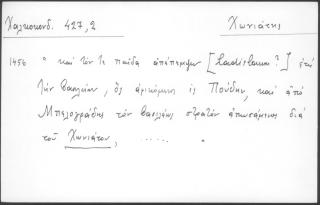 Χαλκοκονδ. 427,2 Χωνιάτης
1456 " καὶ τόν τε παῖδα ἀπέπεμψεν [Ladislaum?] ἐπὶ
τὴν βασιλείαν, ὃς ἀφικόμενος ἐς Πούδην, καὶ ἀπὸ
Μπελογράδης τὸν βασιλέως στρατὸν ἀπωσάμενος διὰ
τοῦ Χωνιάτου, ...... .